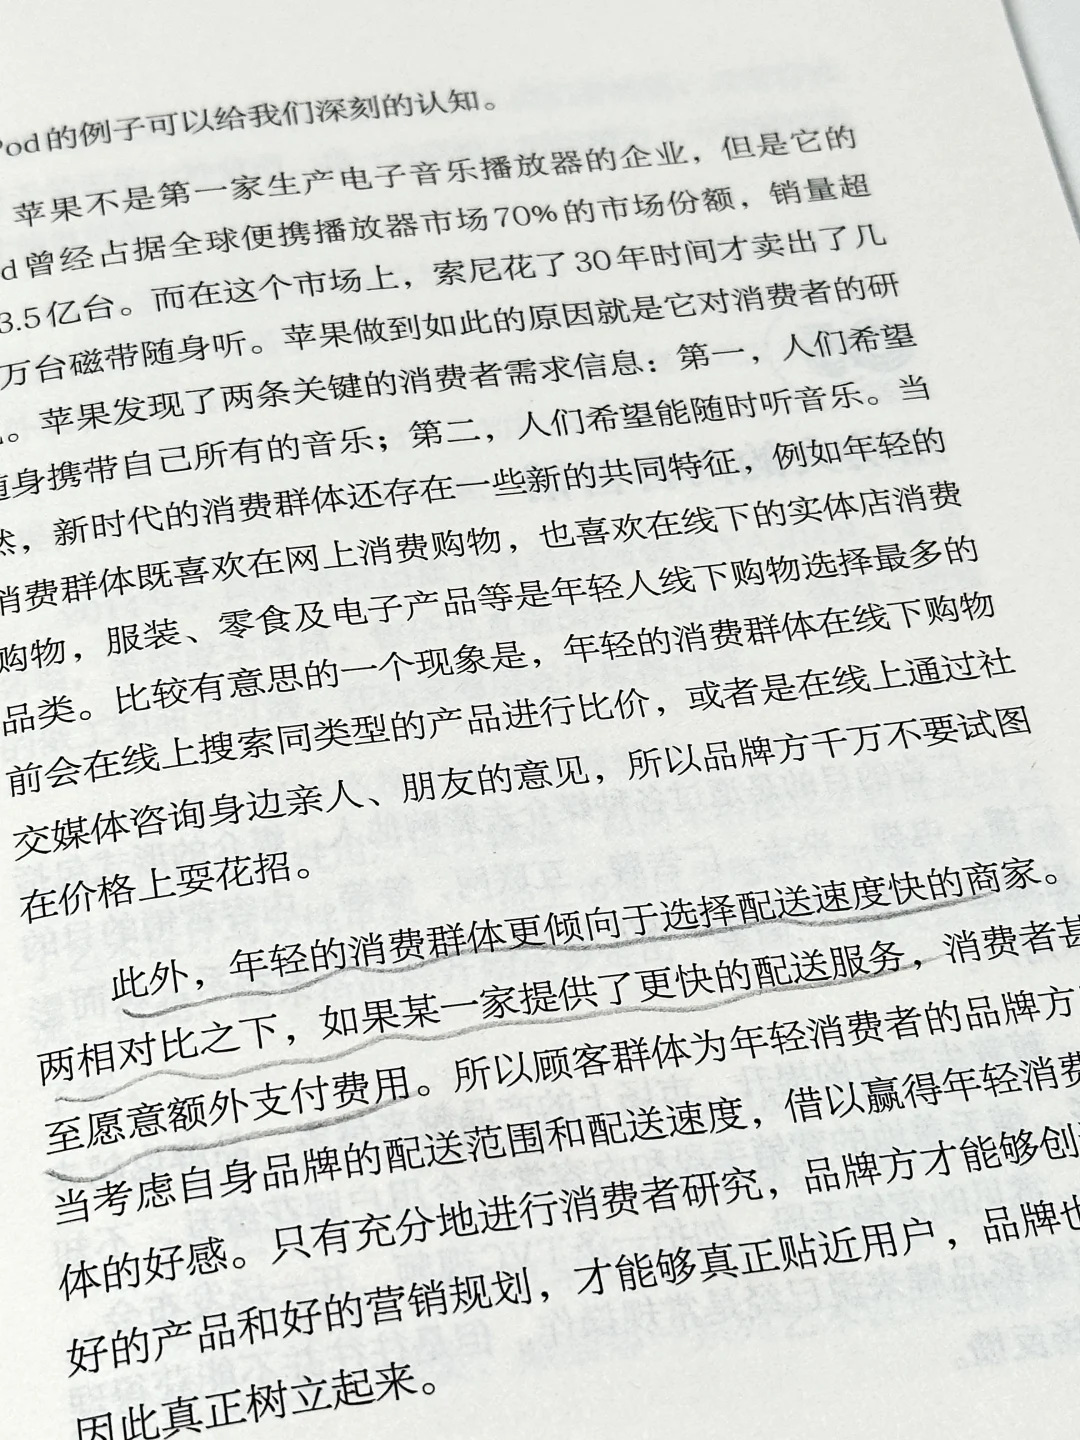 Pod的例子可以给我们深刻的认知。
苹果不是第一家生产电子音乐播放器的企业，但是它的
d曾经占据全球便携播放器市场70%的市场份额，销量超
3.5亿台。而在这个市场上，索尼花了30年时间才卖出了几
万台磁带随身听。苹果做到如此的原因就是它对消费者的研
。苹果发现了两条关键的消费者需求信息：第一，人们希望
随身携带自己所有的音乐；第二，人们希望能随时听音乐。当
然，新时代的消费群体还存在一些新的共同特征，例如年轻的
消费群体既喜欢在网上消费购物，也喜欢在线下的实体店消费
购物，服装、零食及电子产品等是年轻人线下购物选择最多的
品类。比较有意思的一个现象是，年轻的消费群体在线下购物
前会在线上搜索同类型的产品进行比价，或者是在线上通过社
交媒体咨询身边亲人、朋友的意见，所以品牌方千万不要试图
在价格上耍花招。
此外，年轻的消费群体更倾向于选择配送速度快的商家。
两相对比之下，如果某一家提供了更快的配送服务，消费者甚
至愿意额外支付费用。所以顾客群体为年轻消费者的品牌方
当考虑自身品牌的配送范围和配送速度，借以赢得年轻消费
体的好感。只有充分地进行消费者研究，品牌方才能够创
好的产品和好的营销规划，才能够真正贴近用户，品牌也
因此真正树立起来。